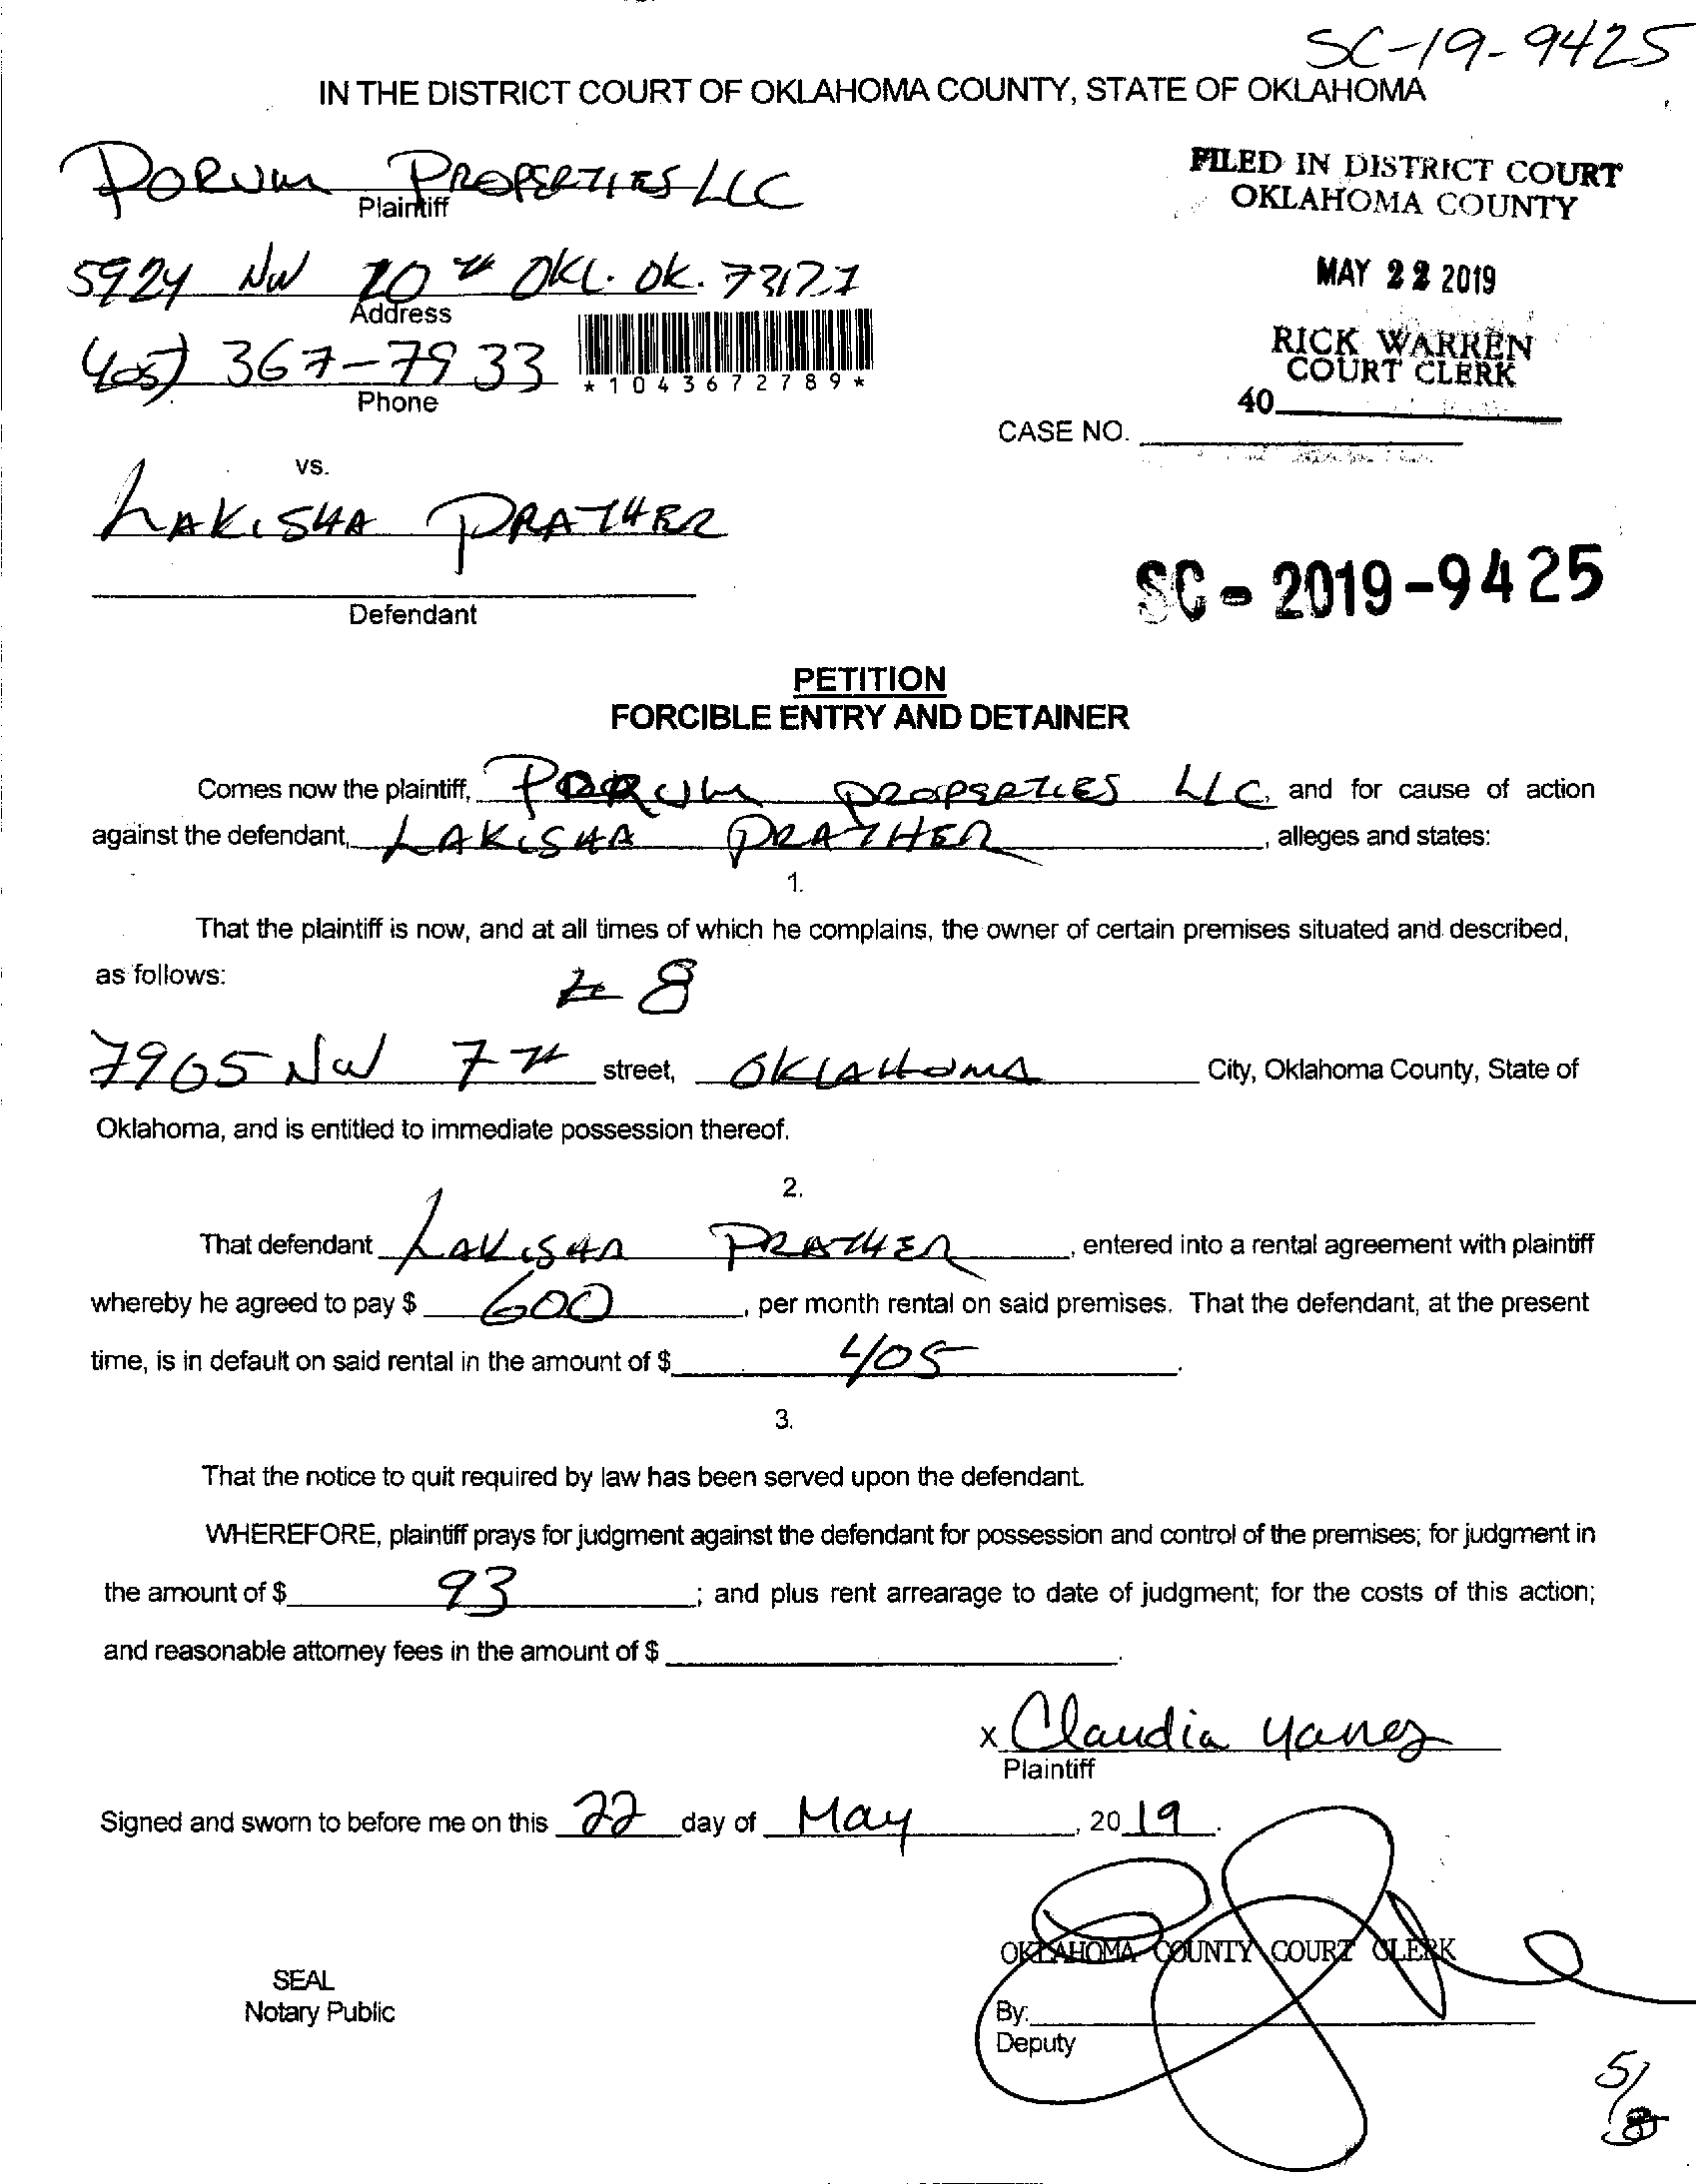 SC-19-9425
IN THE DISTRICT COURT OF OKLAHOMA COUNTY, STATE OF OKLAHOMA
PORUM PROPERTIES LLC
Plaintiff
FILED IN DISTRICT COURT
OKLAHOMA COUNTY
5924 NW 10th OKC. OK. 73127
Address
MAY 22 2019
405) 367-7933
Phone
*1043672789*
RICK WARREN
COURT CLERK
40
CASE NO.
vs.
LAKISHA PRATHER
Defendant
SC-2019-9425
PETITION
FORCIBLE ENTRY AND DETAINER
Comes now the plaintiff, PORUM PROPERTIES LLC, and for cause of action
against the defendant, LAKISHA PRATHER, alleges and states:
1.
That the plaintiff is now, and at all times of which he complains, the owner of certain premises situated and described,
as follows:
# 8
7965 NW 7th street, OKLAHOMA City, Oklahoma County, State of
Oklahoma, and is entitled to immediate possession thereof.
2.
That defendant LAKISHA PRATHER, entered into a rental agreement with plaintiff
whereby he agreed to pay $ 600, per month rental on said premises. That the defendant, at the present
time, is in default on said rental in the amount of $ 405.
3.
That the notice to quit required by law has been served upon the defendant.
WHEREFORE, plaintiff prays for judgment against the defendant for possession and control of the premises; for judgment in
the amount of $ 93; and plus rent arrearage to date of judgment; for the costs of this action;
and reasonable attorney fees in the amount of $ .
x Claudia Yanez
Plaintiff
Signed and sworn to before me on this 22 day of May, 2019.
OKLAHOMA COUNTY COURT CLERK
SEAL
Notary Public
By:
Deputy